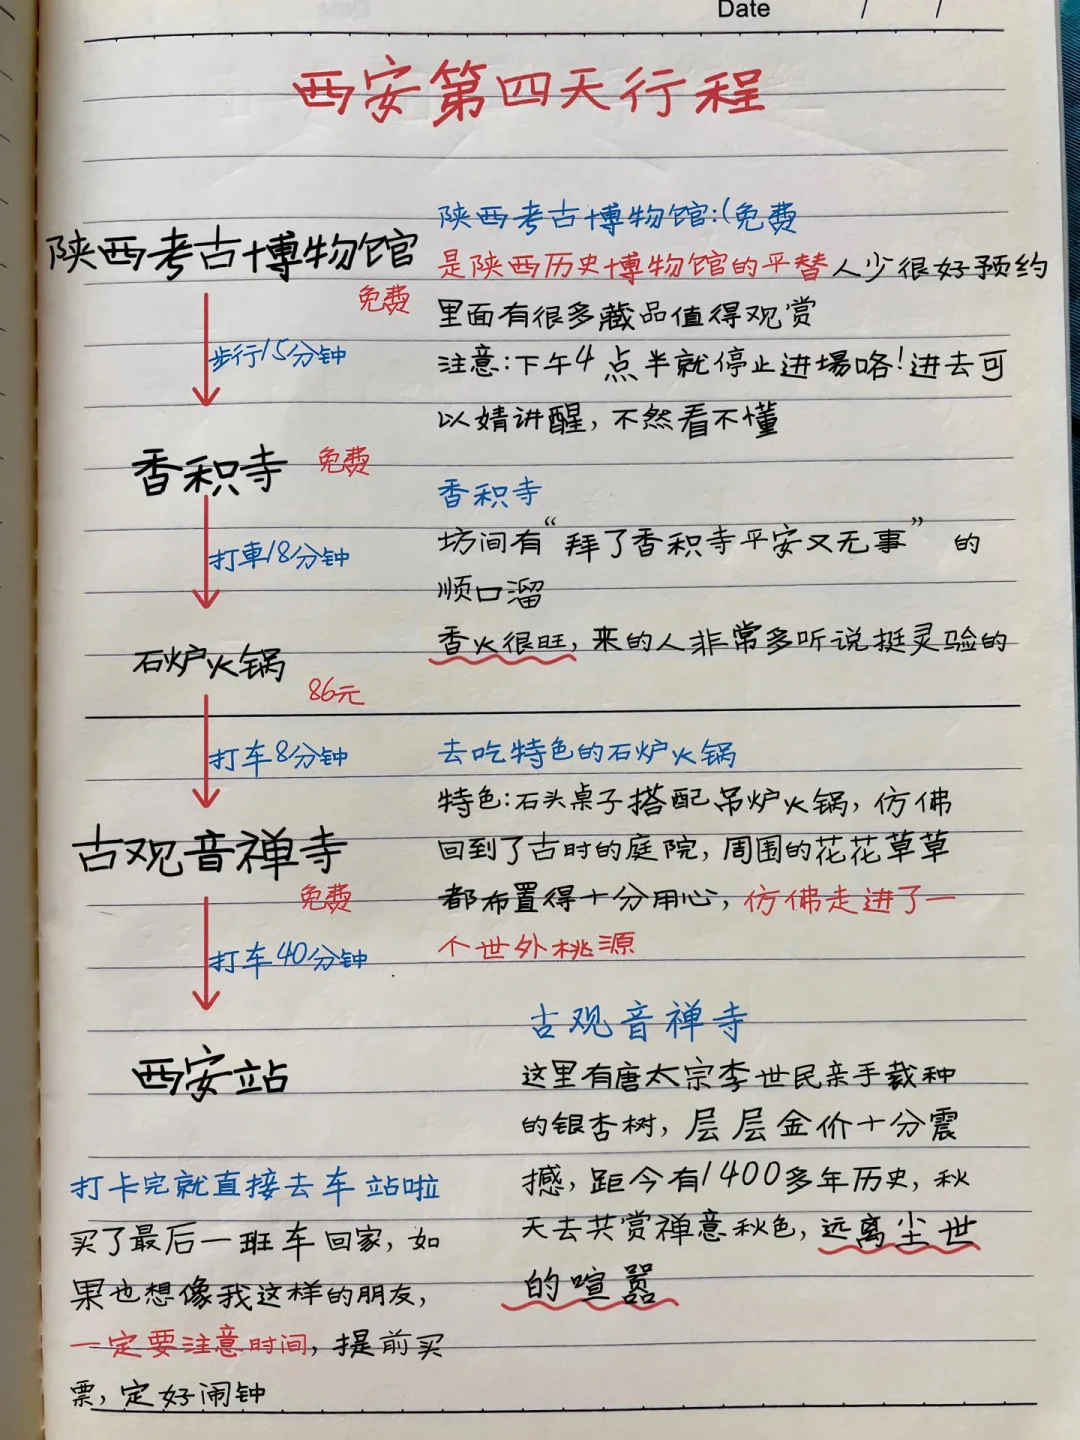 Date / /
西安第四天行程
陕西考古博物馆
免费
步行15分钟
香积寺 免费
打車18分钟
石炉火锅
86元
打车8分钟
古观音禅寺
免费
打车40分钟
西安站
打卡完就直接去车站啦
买了最后一班车回家，如
果也想像我这样的朋友，
一定要注意时间，提前买
票，定好闹钟
陕西考古博物馆：(免费
是陕西历史博物馆的平替人少很好预约
里面有很多藏品值得观赏
注意：下午4点半就停止进場咯！进去可
以婧讲醒，不然看不懂
香积寺
坊间有“拜了香积寺平安又无事”的
顺口溜
香火很旺，来的人非常多听说挺灵验的
去吃特色的石炉火锅
特色：石头桌子搭配吊炉火锅，仿佛
回到了古时的庭院，周围的花花草草
都布置得十分用心，仿佛走进了一
个世外桃源
古观音禅寺
这里有唐太宗李世民亲手栽种
的银杏树，层层金价十分震
撼，距今有1400多年历史，秋
天去共赏禅意秋色，远离尘世
的喧嚣